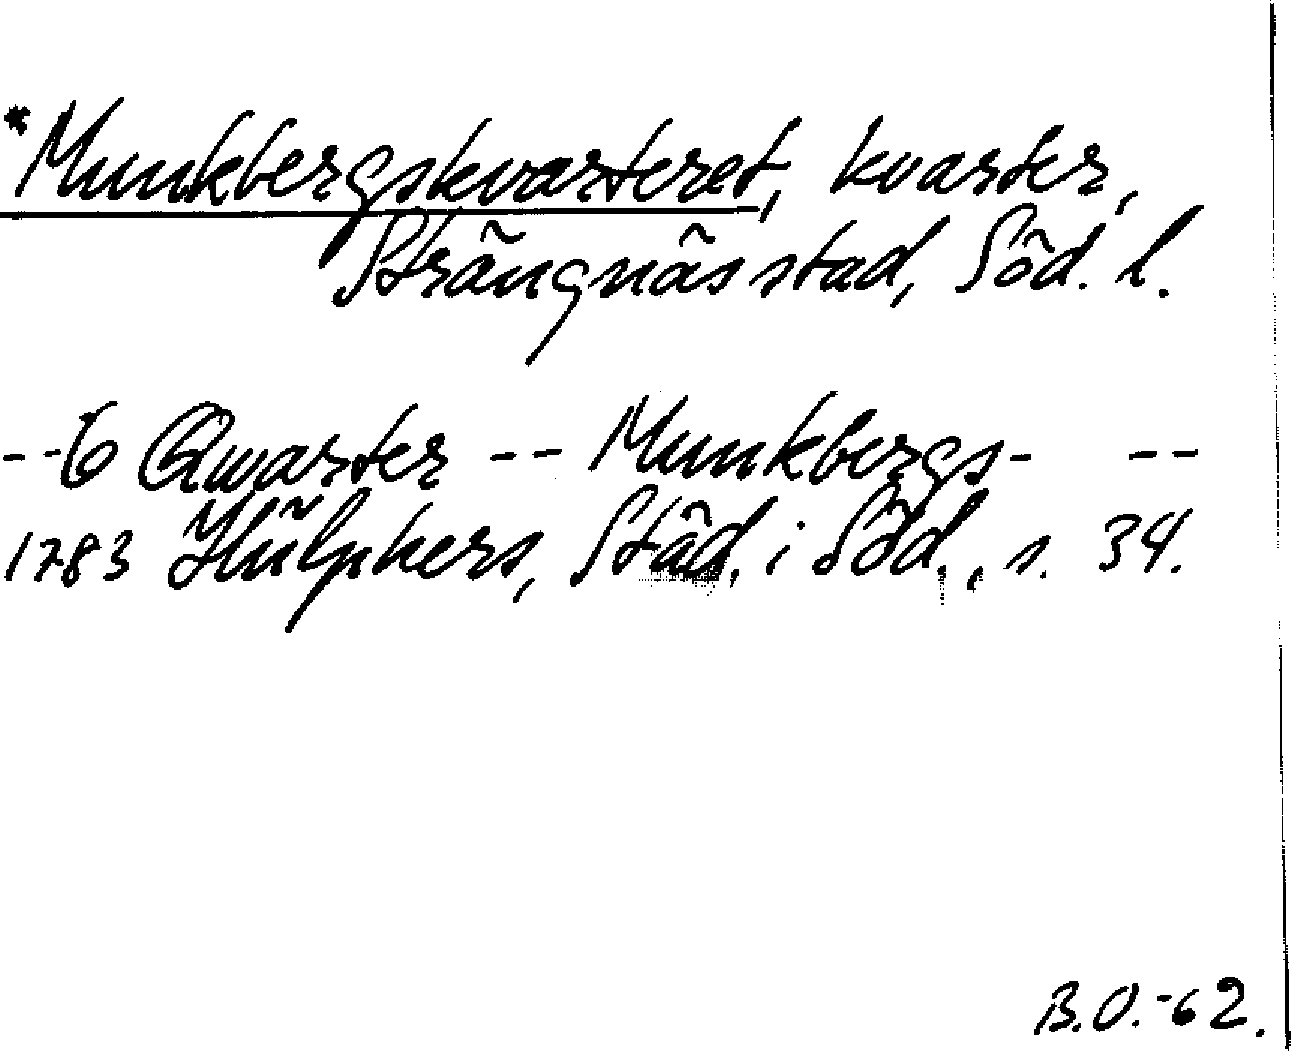 *Munkbergskvarteret, kvarter,
Strängnäs stad, Söd. l.
--6 Qwarter -- Munkbergs- --
1783 Hülphers, Städ. i Söd., s. 34.
B.O.-62.